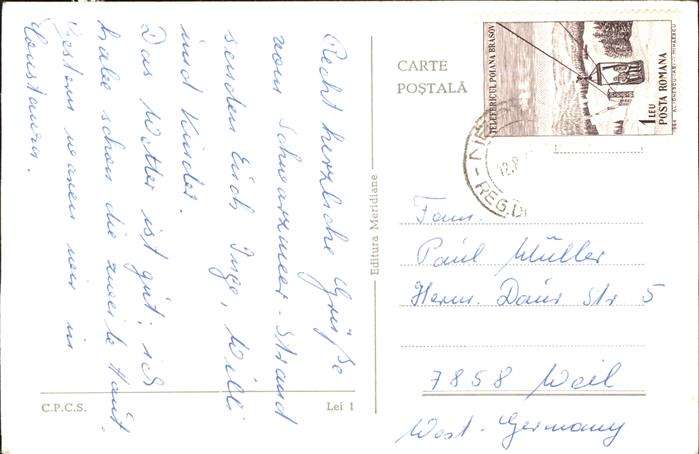 Recht herzliche Grüße
vom Schwarzmeer-Strand
senden Euch Inge, Willi
und Kinder.
Das Wetter ist gut; ich
habe schon die zweite Haut.
Gestern waren wir in
Constanza.
CARTE
POŞTALĂ
TELEFERICUL POIANA BRASOV
1 LEU
POSTA ROMANA
1964 AL. IONESCU-ABI. MIHAESCU
REG.D
Editura Meridiane
Fam.
Paul Müller
Herm. Daur Str 5
7858 Weil
West-Germany
C.P.C.S.
Lei 1